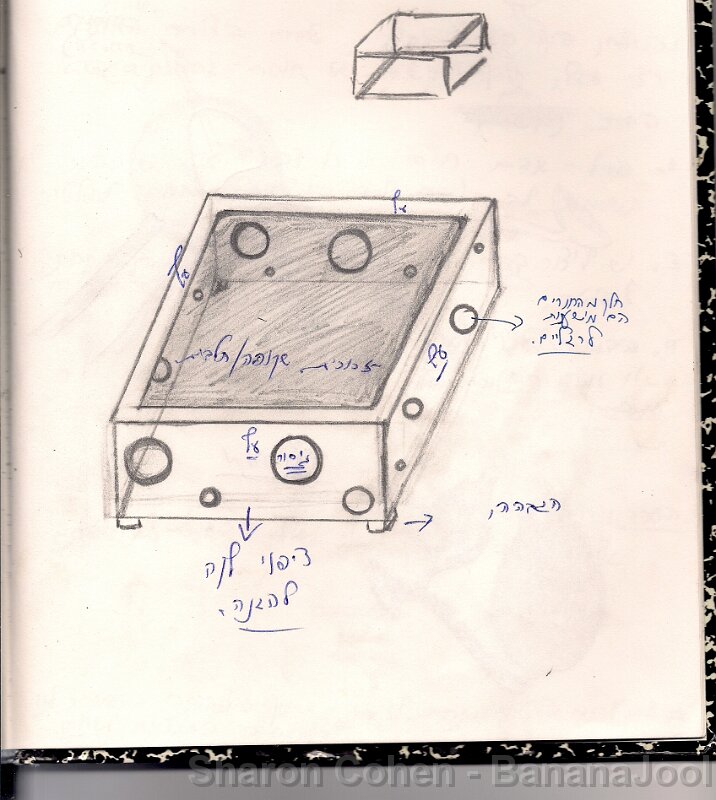 עץ
עץ
חלק מהחורים
הם מישענות
לרגליים.
עץ
זכוכית שקופה/חלבית
עץ
ניסור
הגבהה,
ציפוי לכה
להגנה.
Sharon Cohen - BananaJool